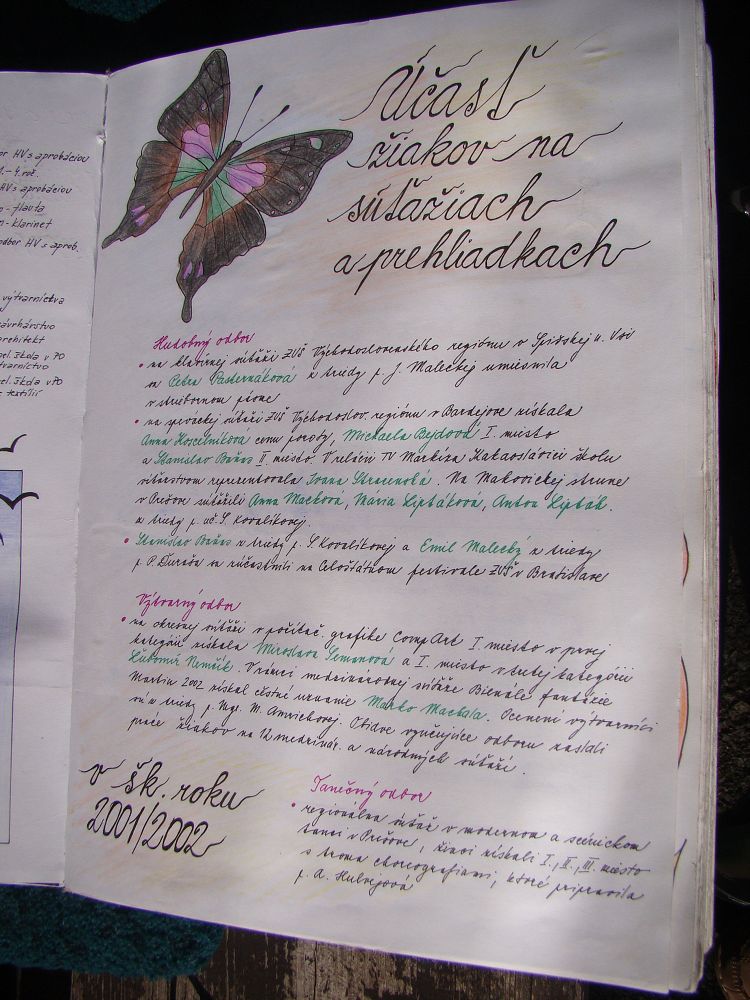 or HV s aprobáciou
1.-4. roč.
HV s aprobáciou
n - flauta
n - klarinet
odbor HV s aprob.
výtvarníctva
návrhárstvo
architekt
pel. škola v PO
tvarníctvo
pel. škola v PO
textilií
Účasť
žiakov na
súťažiach
a prehliadkach
Hudobný odbor
• na klavírnej súťaži ZUŠ Východoslovenského regiónu v Spišskej N. Vsi
sa Petra Pasternáková z triedy p. J. Maleckej umiestnila
v striebornom pásme
• na speváckej súťaži ZUŠ Východoslov. regiónu v Bardejove získala
Anna Koscelníková cenu poroty, Michaela Bejdová I. miesto
a Stanislav Baňas II. miesto. V relácii TV Markíza školu
víťazstvom reprezentovala Ivana. Na Makovickej strune
v Prešove súťažili Anna Macková, Mária Liptáková, Anton Lipták.
z triedy p. uč. S. Kovalíkovej.
• Stanislav Baňas z triedy p. S. Kovalíkovej a Emil Malecký z triedy
p. P. Ďuraša sa zúčastnili na Celoštátnom festivale ZUŠ v Bratislave
Výtvarný odbor
• na okresnej súťaži v počítač. grafike CompArt I. miesto v prvej
kategórii získala Miroslava Semanová a I. miesto v tretej kategórii
Ľubomír Nemčík. V rámci medzinárodnej súťaže Bienále fantázie
Martin 2002 získal čestné uznanie Marko Mackala. Ocenení výtvarníci
sú z triedy p. Mgr. M. Obidve vyučujúce odboru zaslali
práce žiakov na 12 medzinár. a národných súťaží.
v šk. roku
2001/2002
Tanečný odbor
• regionálna súťaž v modernom a scénickom
tanci v Prešove, žiaci získali I., II., III. miesto
s troma choreografiami, ktoré pripravila
p. A. Hulvejová